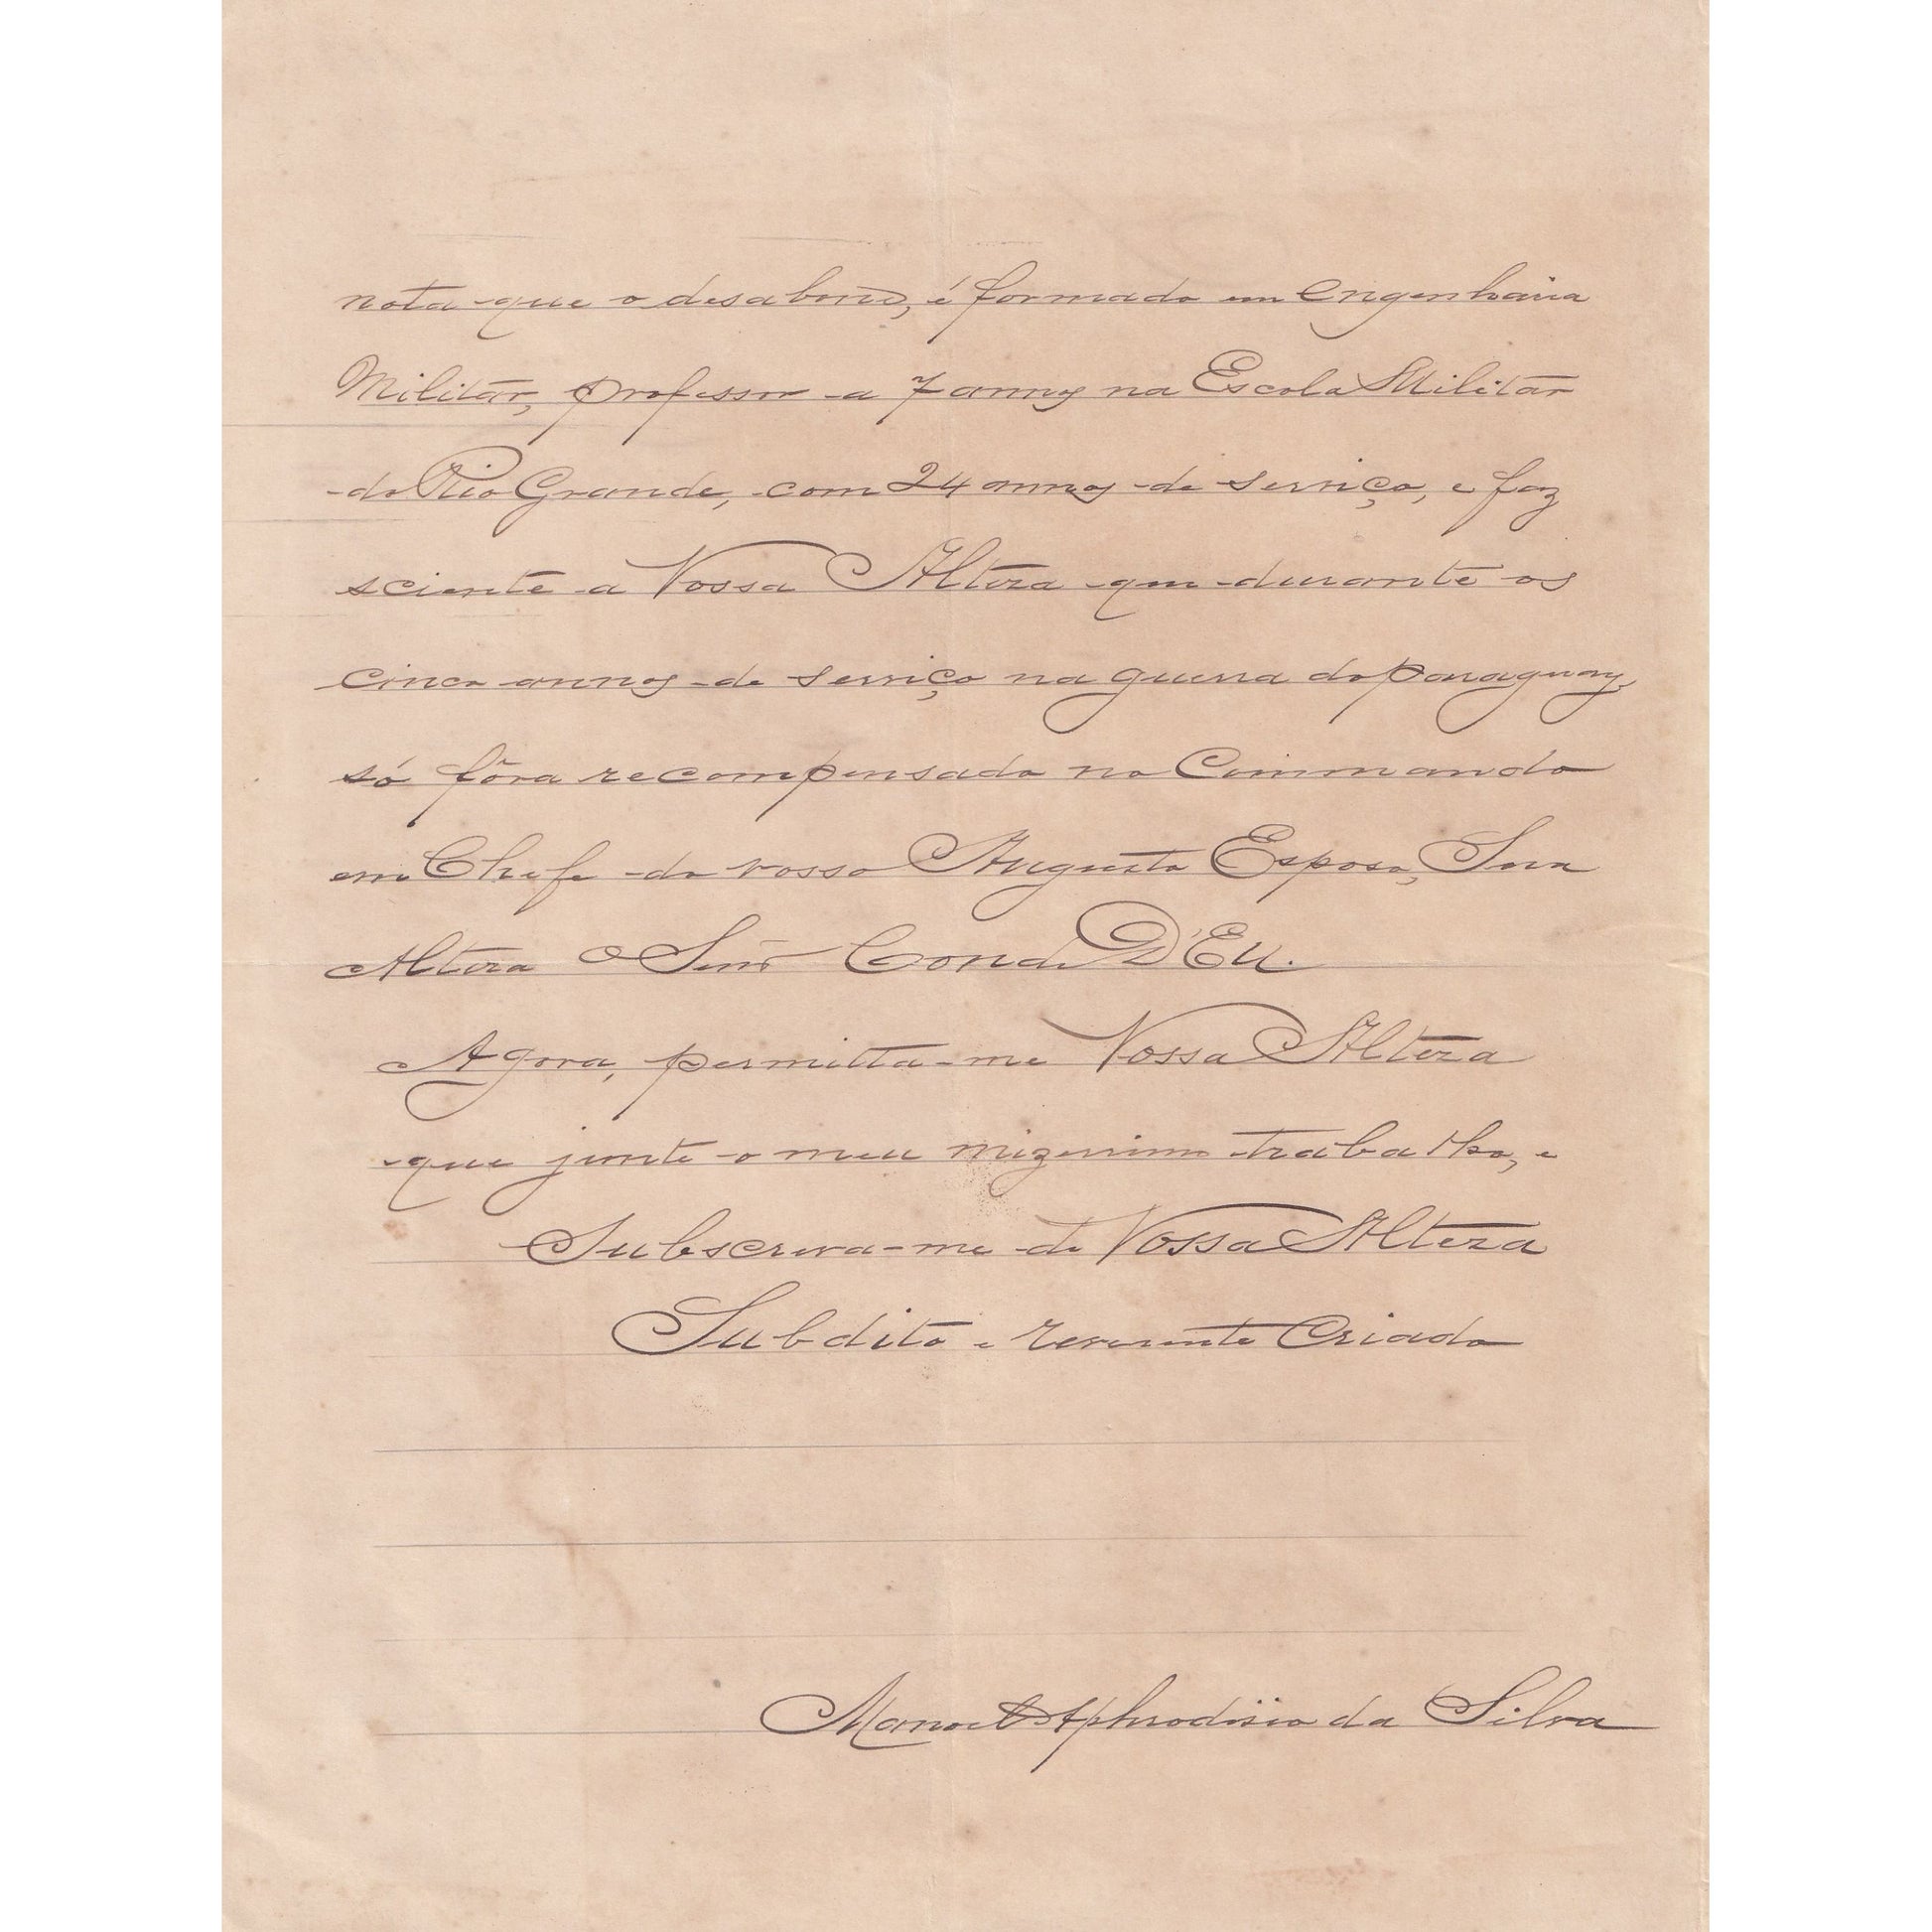 nota que o desabone, é formado em Engenharia
Militar, professor a 7 annos na Escola Militar
do Rio Grande, com 24 annos de serviço, e faz
sciente a Vossa Alteza que durante os
cinco annos de serviço na guerra do Paraguay,
só fôra recompensado no Commando
em Chefe do vosso Augusto Esposo, Sua
Alteza o Senr Conde D'Eu.
Agora, permitta-me Vossa Alteza
que junte o meu mizerrimo trabalho, e
Subscreva-me de Vossa Alteza
Subdito e reverente Criado
Manoel Aphrodisio da Silva